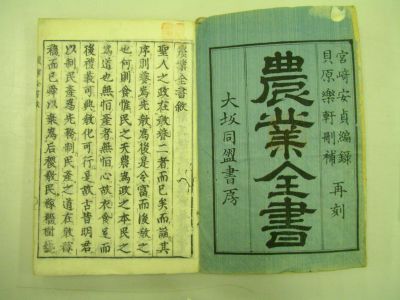 宮﨑安貞編録
貝原樂軒刪補
再刻
農業全書
大坂同盟書房
農業全書敘
聖人之政在教養二者而已矣而論其
序則養為先教為後是令富而後教之
也何則食惟民之天農為政之本民之
為道也無恒產者無恒心故衣食足而
後禮義可興教化可行是故古昔明君
以制民產為先務制民產之道在教稼
穡而已舜以棄為后稷教民稼穡樹藝